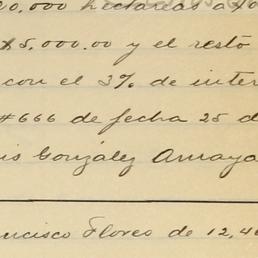 20,000 hectáreas a
$5,000.00 y el resto
con el 3% de inter
#666 de fecha 25 d
is González Amaya
ncisco Flores de 12,40